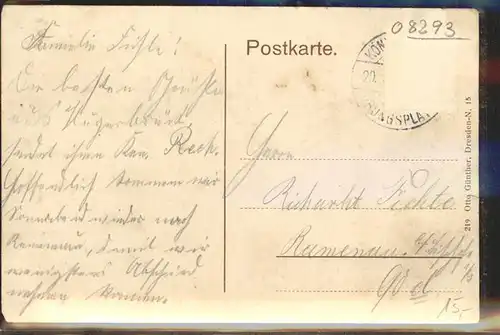 Familie Fichte!
Die besten Grüße
aus Königsbrück
sendet ihnen Kan. Rech.
Hoffentlich kommen wir
Sonnabend wieder nach
Ramenau, damit wir
wenigstens Abschied
nehmen können.
Postkarte.
08293
KÖN
20
UNGSPLA
Herrn
Richardt Fichte
Ramenau
219 Otto Günther, Dresden-N. 15
15,-